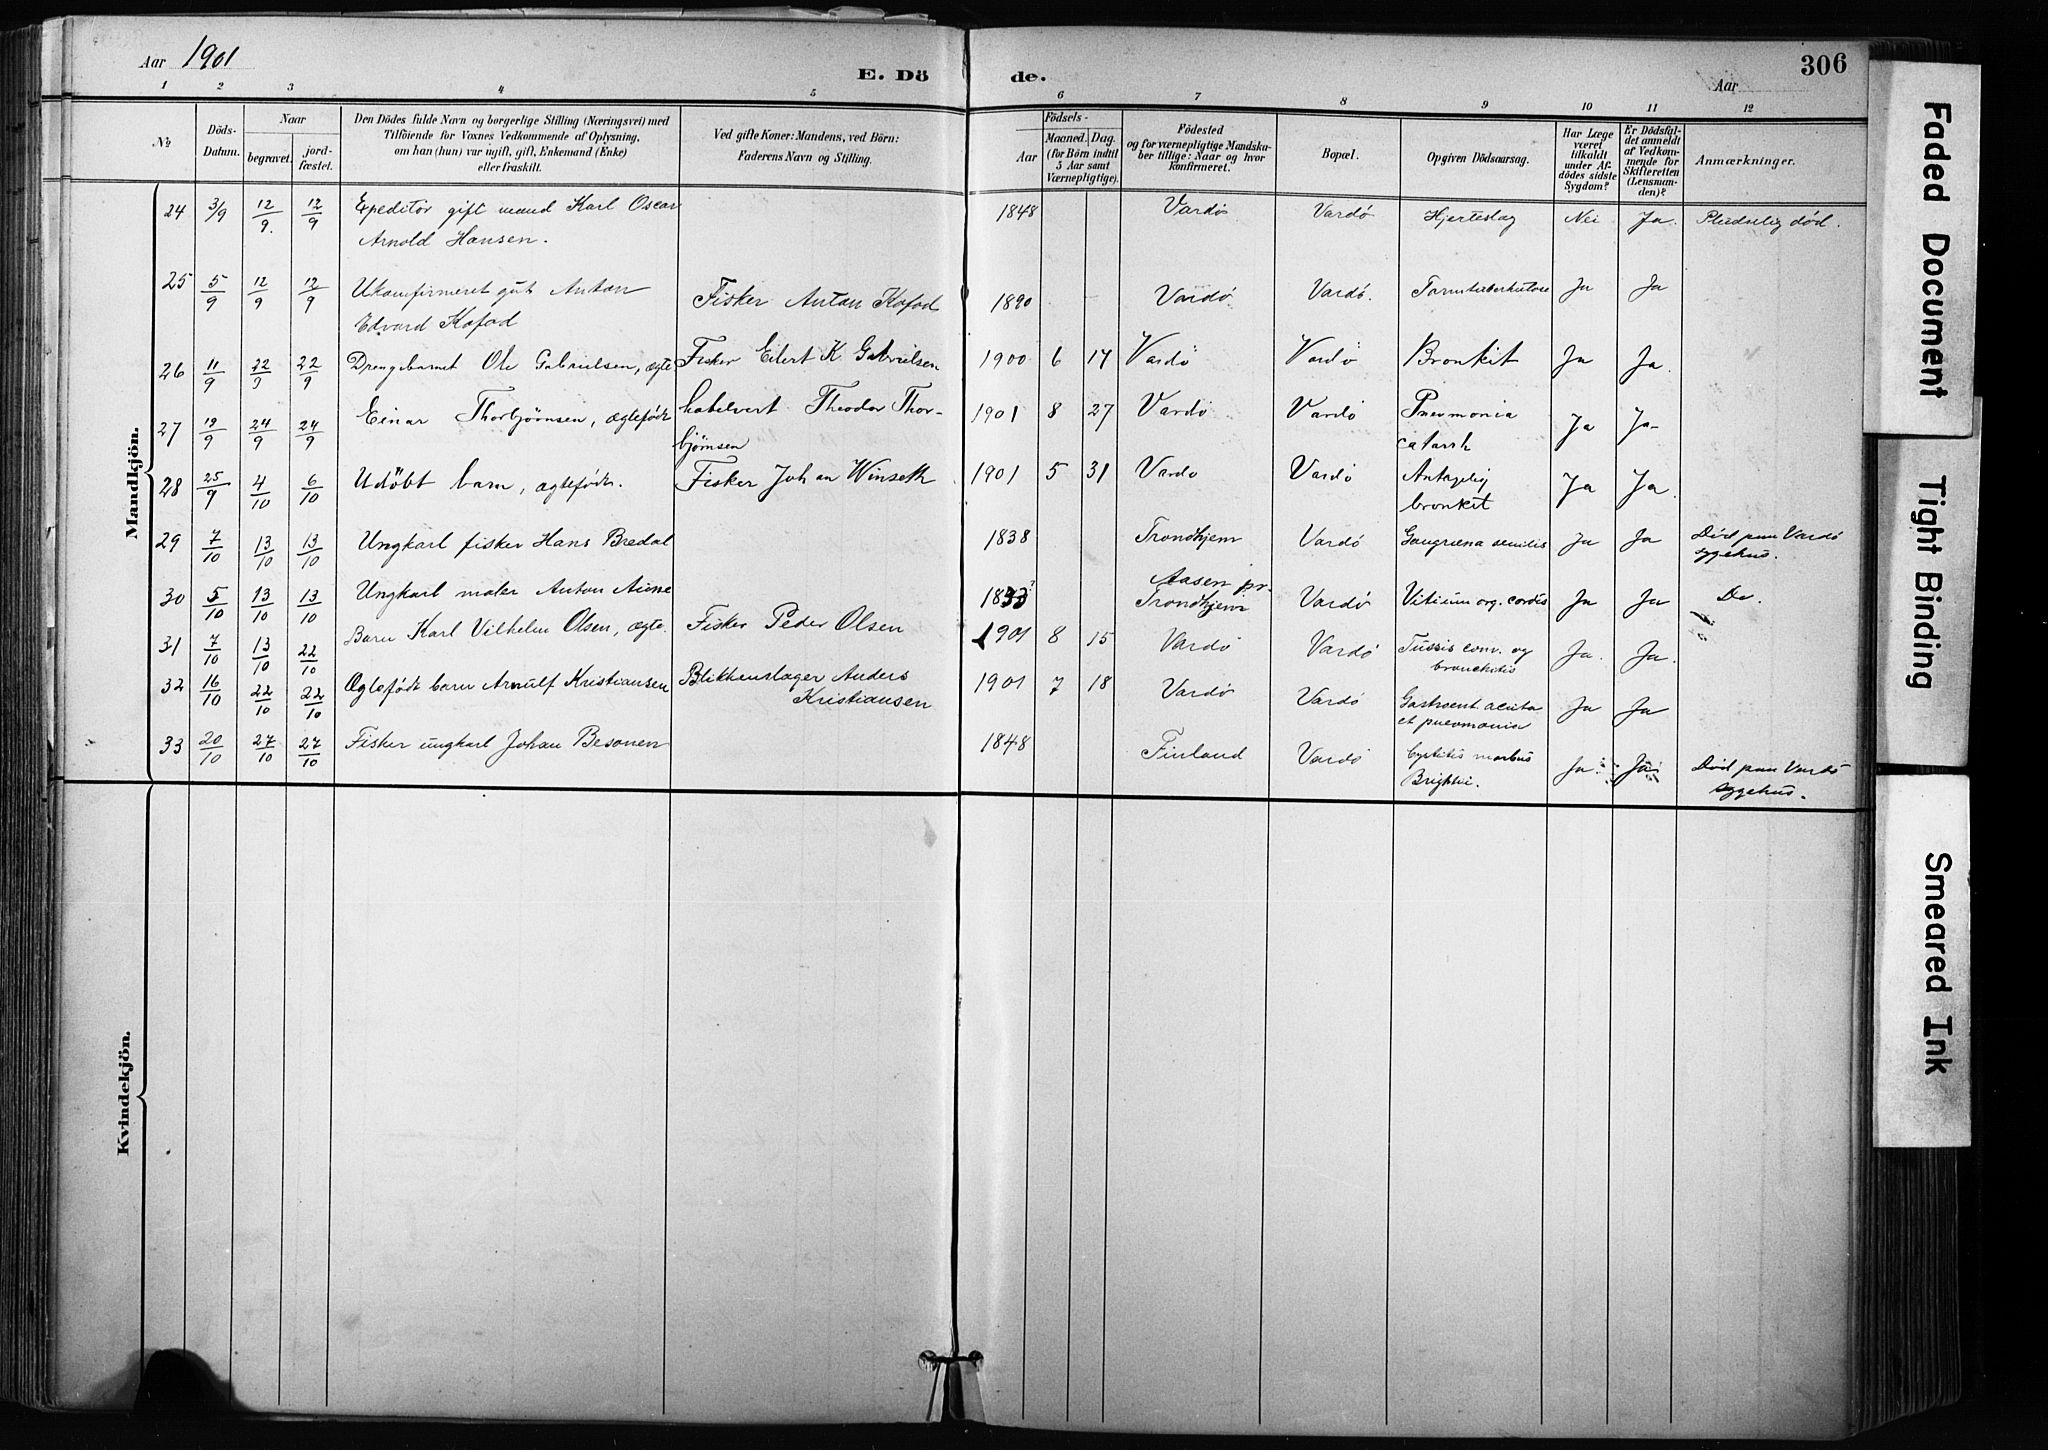 Aar 1901
E. Döde.
Aar
306
1 2 3 4 5 6 7 8 9 10 11 12
№
Döds-Datum.
Naar
begravet.
jordfæstet.
Den Dödes fulde Navn og borgerlige Stilling (Næringsvei) med
Tilföiende for Voxnes Vedkommende af Oplysning,
om han (hun) var ugift, gift, Enkemand (Enke)
eller fraskilt.
Ved gifte Koner: Mandens, ved Börn:
Faderens Navn og Stilling.
Födsels-
Aar
Maaned. Dag.
(for Börn indtil
5 Aar samt
Værnepligtige).
Födested
og for værnepligtige Mandsku-
ber tillige: Naar og hvor
konfirmeret.
Bopæl.
Opgiven Dödsaarsag.
Har Læge
været
tilkaldt
under Af-
dödes sidste
Sygdom?
Er Dödsfal-
det anmeldt
af Vedkom-
mende for
Skifteretten
(Lensman-
den)?
Anmærkninger.
Mandkjön.
24 3/9 12/9. 12/9 Epeditör gift mand Karl Oscar 1848 Vardö Vardö Hjerteslag Nei Ja. Pludselig död.
Arnold Hansen.
25 5/9 12/9 12/9 Ukonfirmeret gut Anton Fisker Anton Kofod 1890 Vardö Vardö. Tarmtuberkulose Ja Ja
Edvard Kofod
26 11/9 22/9 22/9 Drengebarnet Ole Gabrielsen, ægte Fisker Eilert K Gabrielsen 1900 6 17 Vardö Vardö Bronkit Ja Ja.
27 19/9 24/9 24/9 Einar Thorbjörnsen, ægtefödt Theodor Thor- 1901 8 27 Vardö Vardö Pneumonia Ja Ja-
björnsen catarrh
28 25/9 4/10 6/10 Udöbt barn, ægtefödt. Fisker Johan Winseth 1901 5 31 Vardö Vardö Antagelig Ja Ja.
bronkit
29 7/10 13/10 13/10 Ungkarl fisker Hans Bredal 1838 Trondhjem Vardö Gangræna senilis Ja Ja Död paa Vardö
sygehus.
30 5/10 13/10 13/10 Ungkarl maler Anton Aune 1833? Aasen pr. Vardö Vitium org. cordis Ja Ja Do.
Trondhjem
31 7/10 13/10 22/10 Barn Karl Vilhelm Olsen, ægte. Fisker Peder Olsen 1901 8 15 Vardö Vardö Tussis conv. og Ja. Ja.
bronchitis
32 16/10 22/10 22/10 Ægtefödt barn Arnulf Kristiansen Blikkenslager Anders 1901 7 18 Vardö Vardö Gastroent. acuta Ja Ja
Kristiansen et pneumonia
33 20/10 27/10 27/10 Fisker ungkarl Johan Besonen 1848 Finland Vardö Cystitis morbus Ja. Ja Död paa Vardö
Brightii. sygehus.
Kvindekjön.
Faded Document
Tight Binding
Smeared Ink